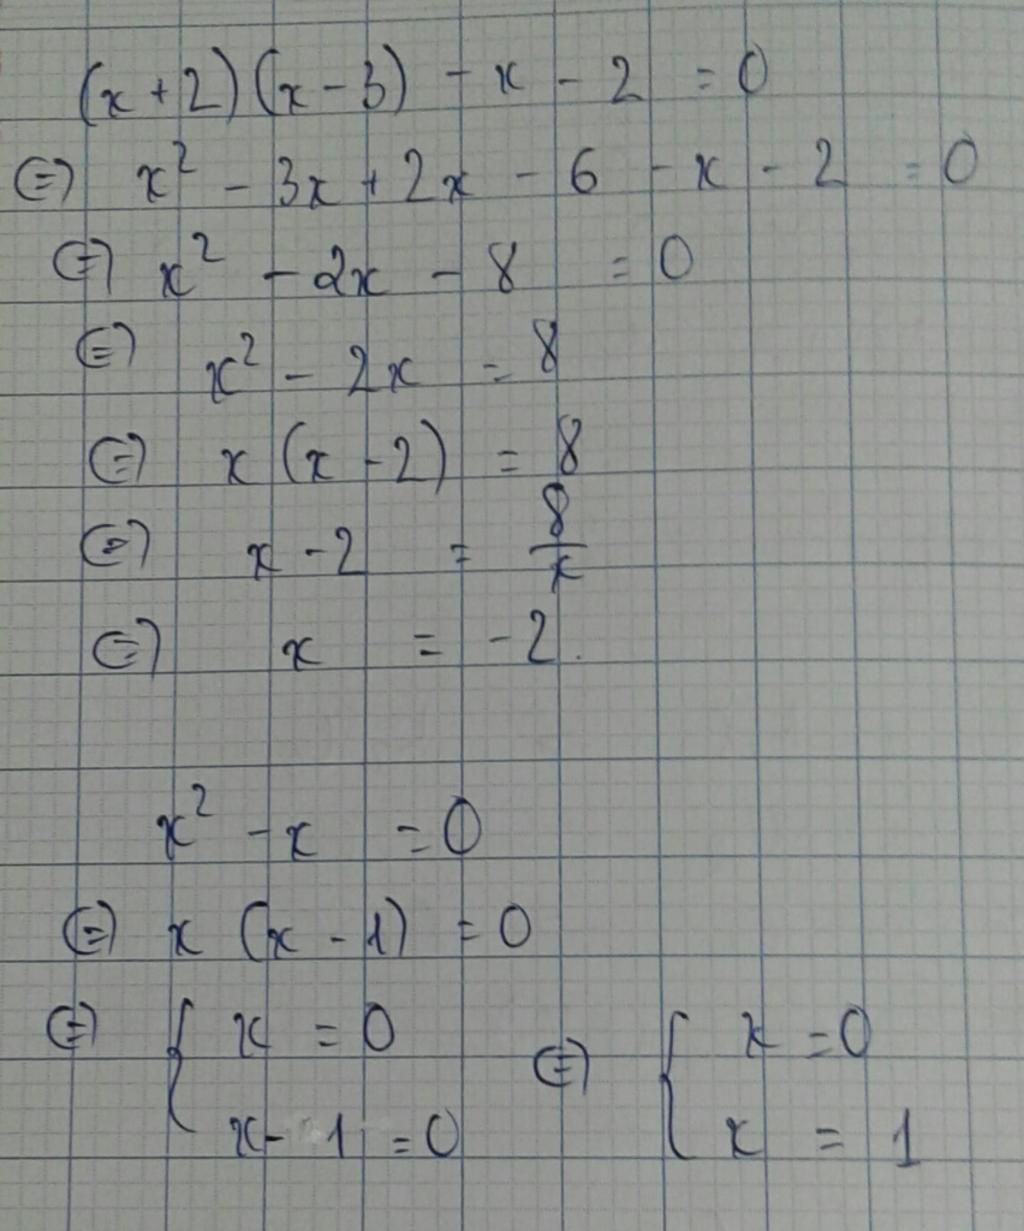 (x+2)(x-3) - x - 2 = 0
⇔ x² - 3x + 2x - 6 - x - 2 = 0
⇔ x² - 2x - 8 = 0
⇔ x² - 2x = 8
⇔ x(x-2) = 8
⇔ x - 2 = 8/x
⇔ x = -2.
x² - x = 0
⇔ x(x-1) = 0
⇔ { x = 0 ⇔ { x = 0
x - 1 = 0 x = 1